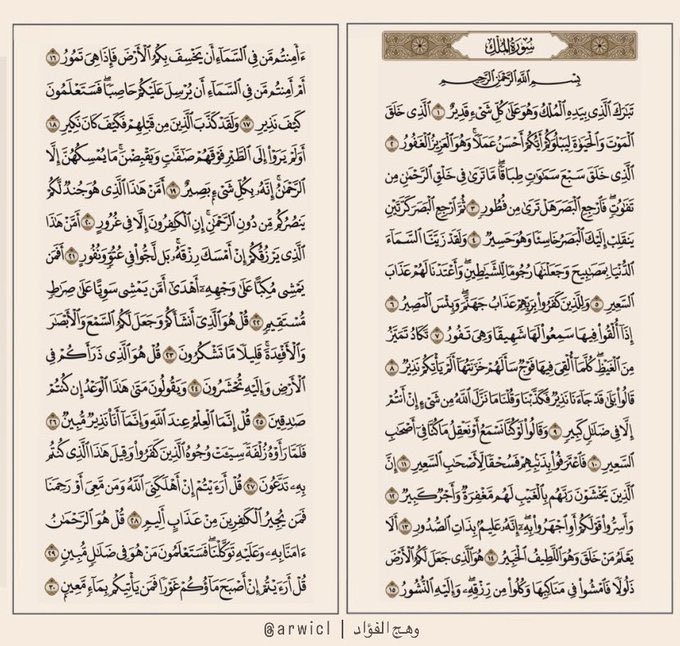 سُورَةُ المُلْكِ
بِسْمِ اللَّهِ الرَّحْمَٰنِ الرَّحِيمِ
تَبَٰرَكَ الَّذِي بِيَدِهِ الْمُلْكُ وَهُوَ عَلَىٰ كُلِّ شَيْءٍ قَدِيرٌ ١ الَّذِي خَلَقَ
الْمَوْتَ وَالْحَيَوٰةَ لِيَبْلُوَكُمْ أَيُّكُمْ أَحْسَنُ عَمَلًا ۚ وَهُوَ الْعَزِيزُ الْغَفُورُ ٢
الَّذِي خَلَقَ سَبْعَ سَمَٰوَٰتٍ طِبَاقًا ۖ مَّا تَرَىٰ فِي خَلْقِ الرَّحْمَٰنِ مِن
تَفَٰوُتٍ ۖ فَارْجِعِ الْبَصَرَ هَلْ تَرَىٰ مِن فُطُورٍ ٣ ثُمَّ ارْجِعِ الْبَصَرَ كَرَّتَيْنِ
يَنقَلِبْ إِلَيْكَ الْبَصَرُ خَاسِئًا وَهُوَ حَسِيرٌ ٤ وَلَقَدْ زَيَّنَّا السَّمَاءَ
الدُّنْيَا بِمَصَٰبِيحَ وَجَعَلْنَٰهَا رُجُومًا لِّلشَّيَٰطِينِ ۖ وَأَعْتَدْنَا لَهُمْ عَذَابَ
السَّعِيرِ ٥ وَلِلَّذِينَ كَفَرُوا بِرَبِّهِمْ عَذَابُ جَهَنَّمَ ۖ وَبِئْسَ الْمَصِيرُ ٦
إِذَا أُلْقُوا فِيهَا سَمِعُوا لَهَا شَهِيقًا وَهِيَ تَفُورُ ٧ تَكَادُ تَمَيَّزُ
مِنَ الْغَيْظِ ۖ كُلَّمَا أُلْقِيَ فِيهَا فَوْجٌ سَأَلَهُمْ خَزَنَتُهَا أَلَمْ يَأْتِكُمْ نَذِيرٌ ٨
قَالُوا بَلَىٰ قَدْ جَاءَنَا نَذِيرٌ فَكَذَّبْنَا وَقُلْنَا مَا نَزَّلَ اللَّهُ مِن شَيْءٍ إِنْ أَنتُمْ
إِلَّا فِي ضَلَٰلٍ كَبِيرٍ ٩ وَقَالُوا لَوْ كُنَّا نَسْمَعُ أَوْ نَعْقِلُ مَا كُنَّا فِي أَصْحَٰبِ
السَّعِيرِ ١٠ فَاعْتَرَفُوا بِذَنبِهِمْ فَسُحْقًا لِّأَصْحَٰبِ السَّعِيرِ ١١ إِنَّ
الَّذِينَ يَخْشَوْنَ رَبَّهُم بِالْغَيْبِ لَهُم مَّغْفِرَةٌ وَأَجْرٌ كَبِيرٌ ١٢
وَأَسِرُّوا قَوْلَكُمْ أَوِ اجْهَرُوا بِهِ ۖ إِنَّهُ عَلِيمٌ بِذَاتِ الصُّدُورِ ١٣ أَلَا
يَعْلَمُ مَنْ خَلَقَ وَهُوَ اللَّطِيفُ الْخَبِيرُ ١٤ هُوَ الَّذِي جَعَلَ لَكُمُ الْأَرْضَ
ذَلُولًا فَامْشُوا فِي مَنَاكِبِهَا وَكُلُوا مِن رِّزْقِهِ ۖ وَإِلَيْهِ النُّشُورُ ١٥
ءَأَمِنتُم مَّن فِي السَّمَاءِ أَن يَخْسِفَ بِكُمُ الْأَرْضَ فَإِذَا هِيَ تَمُورُ ١٦
أَمْ أَمِنتُم مَّن فِي السَّمَاءِ أَن يُرْسِلَ عَلَيْكُمْ حَاصِبًا ۖ فَسَتَعْلَمُونَ
كَيْفَ نَذِيرِ ١٧ وَلَقَدْ كَذَّبَ الَّذِينَ مِن قَبْلِهِمْ فَكَيْفَ كَانَ نَكِيرِ ١٨
أَوَلَمْ يَرَوْا إِلَى الطَّيْرِ فَوْقَهُمْ صَٰٓفَّٰتٍ وَيَقْبِضْنَ ۚ مَا يُمْسِكُهُنَّ إِلَّا
الرَّحْمَٰنُ ۚ إِنَّهُ بِكُلِّ شَيْءٍ بَصِيرٌ ١٩ أَمَّنْ هَٰذَا الَّذِي هُوَ جُندٌ لَّكُمْ
يَنصُرُكُم مِّن دُونِ الرَّحْمَٰنِ ۚ إِنِ الْكَٰفِرُونَ إِلَّا فِي غُرُورٍ ٢٠ أَمَّنْ هَٰذَا
الَّذِي يَرْزُقُكُمْ إِنْ أَمْسَكَ رِزْقَهُ ۚ بَل لَّجُّوا فِي عُتُوٍّ وَنُفُورٍ ٢١ أَفَمَن
يَمْشِي مُكِبًّا عَلَىٰ وَجْهِهِ أَهْدَىٰ أَمَّن يَمْشِي سَوِيًّا عَلَىٰ صِرَٰطٍ
مُّسْتَقِيمٍ ٢٢ قُلْ هُوَ الَّذِي أَنشَأَكُمْ وَجَعَلَ لَكُمُ السَّمْعَ وَالْأَبْصَٰرَ
وَالْأَفْـِٔدَةَ ۖ قَلِيلًا مَّا تَشْكُرُونَ ٢٣ قُلْ هُوَ الَّذِي ذَرَأَكُمْ فِي
الْأَرْضِ وَإِلَيْهِ تُحْشَرُونَ ٢٤ وَيَقُولُونَ مَتَىٰ هَٰذَا الْوَعْدُ إِن كُنتُمْ
صَٰدِقِينَ ٢٥ قُلْ إِنَّمَا الْعِلْمُ عِندَ اللَّهِ وَإِنَّمَا أَنَا نَذِيرٌ مُّبِينٌ ٢٦
فَلَمَّا رَأَوْهُ زُلْفَةً سِيٓـَٔتْ وُجُوهُ الَّذِينَ كَفَرُوا وَقِيلَ هَٰذَا الَّذِي كُنتُم
بِهِ تَدَّعُونَ ٢٧ قُلْ أَرَءَيْتُمْ إِنْ أَهْلَكَنِيَ اللَّهُ وَمَن مَّعِيَ أَوْ رَحِمَنَا
فَمَن يُجِيرُ الْكَٰفِرِينَ مِنْ عَذَابٍ أَلِيمٍ ٢٨ قُلْ هُوَ الرَّحْمَٰنُ
ءَامَنَّا بِهِ وَعَلَيْهِ تَوَكَّلْنَا ۖ فَسَتَعْلَمُونَ مَنْ هُوَ فِي ضَلَٰلٍ مُّبِينٍ ٢٩
قُلْ أَرَءَيْتُمْ إِنْ أَصْبَحَ مَاؤُكُمْ غَوْرًا فَمَن يَأْتِيكُم بِمَاءٍ مَّعِينٍ ٣٠
وهج الفؤاد | @arwicl